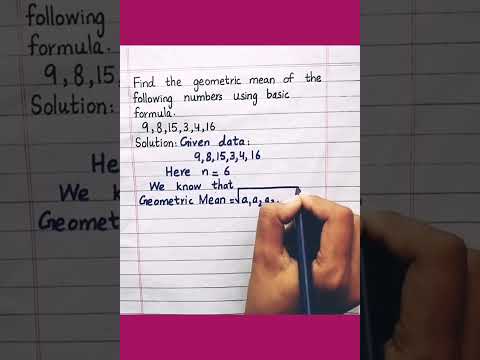 following
formula.
9,8,15,
Solution:
He
We k
Find the geometric mean of the
following numbers using basic
formula.
9,8,15,3,4,16
Solution: Given data:
9,8,15,3,4,16
Here n = 6
We know that
Geometric Mean = √a₁a₂a₃.